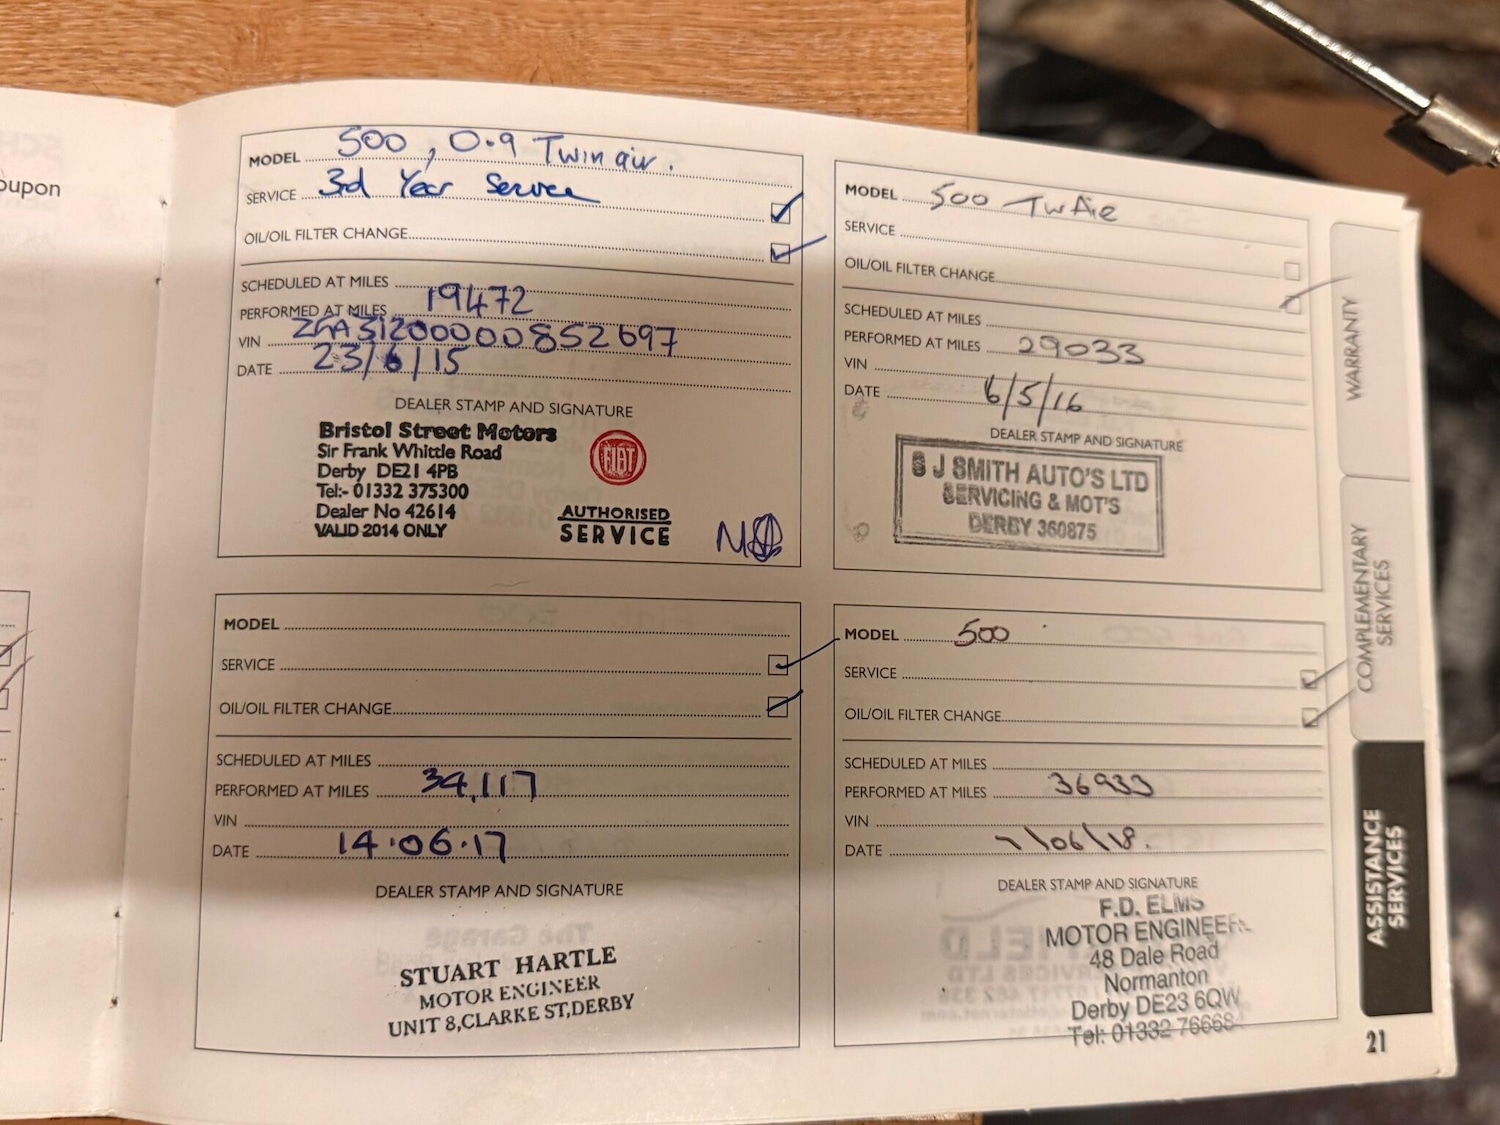 oupon
MODEL 500, 0.9 Twin air.
SERVICE 3rd Year Service
OIL/OIL FILTER CHANGE
SCHEDULED AT MILES
PERFORMED AT MILES 19472
VIN ZFA31200000852697
DATE 23/6/15
DEALER STAMP AND SIGNATURE
Bristol Street Motors
Sir Frank Whittle Road
Derby DE21 4PB
Tel:- 01332 375300
Dealer No 42614
VALID 2014 ONLY
FIAT
AUTHORISED
SERVICE
MODEL 500 TwAie
SERVICE
OIL/OIL FILTER CHANGE
SCHEDULED AT MILES
PERFORMED AT MILES 29033
VIN
DATE 6/5/16
DEALER STAMP AND SIGNATURE
S J SMITH AUTO'S LTD
SERVICING & MOT'S
DERBY 360875
MODEL
SERVICE
OIL/OIL FILTER CHANGE
SCHEDULED AT MILES
PERFORMED AT MILES 34,117
VIN
DATE 14.06.17
DEALER STAMP AND SIGNATURE
STUART HARTLE
MOTOR ENGINEER
UNIT 8,CLARKE ST,DERBY
MODEL 500
SERVICE
OIL/OIL FILTER CHANGE
SCHEDULED AT MILES
PERFORMED AT MILES 36933
VIN
DATE 7/06/18.
DEALER STAMP AND SIGNATURE
F.D. ELMS
MOTOR ENGINEER
48 Dale Road
Normanton
Derby DE23 6QW
Tel: 01332 76668
WARRANTY
COMPLEMENTARY
SERVICES
ASSISTANCE
SERVICES
21